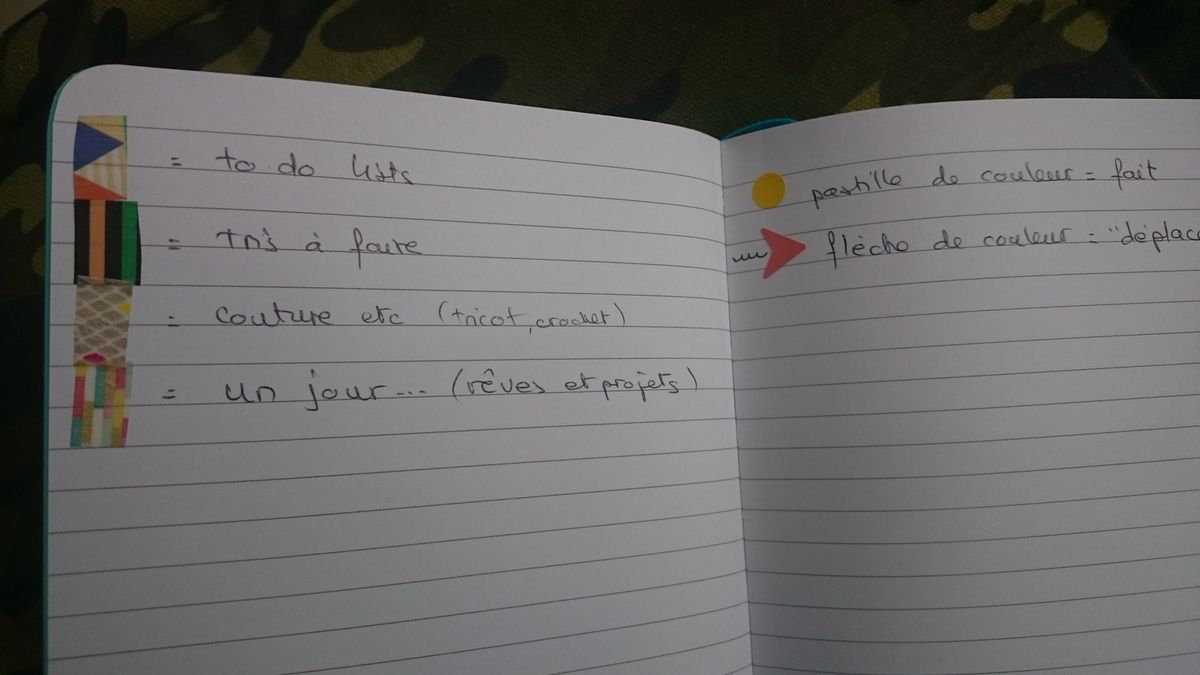 = to do lists
= trs à faire
= couture etc (tricot, crochet)
= un jour... (rêves et projets)
pastille de couleur = fait
flèche de couleur = "déplac